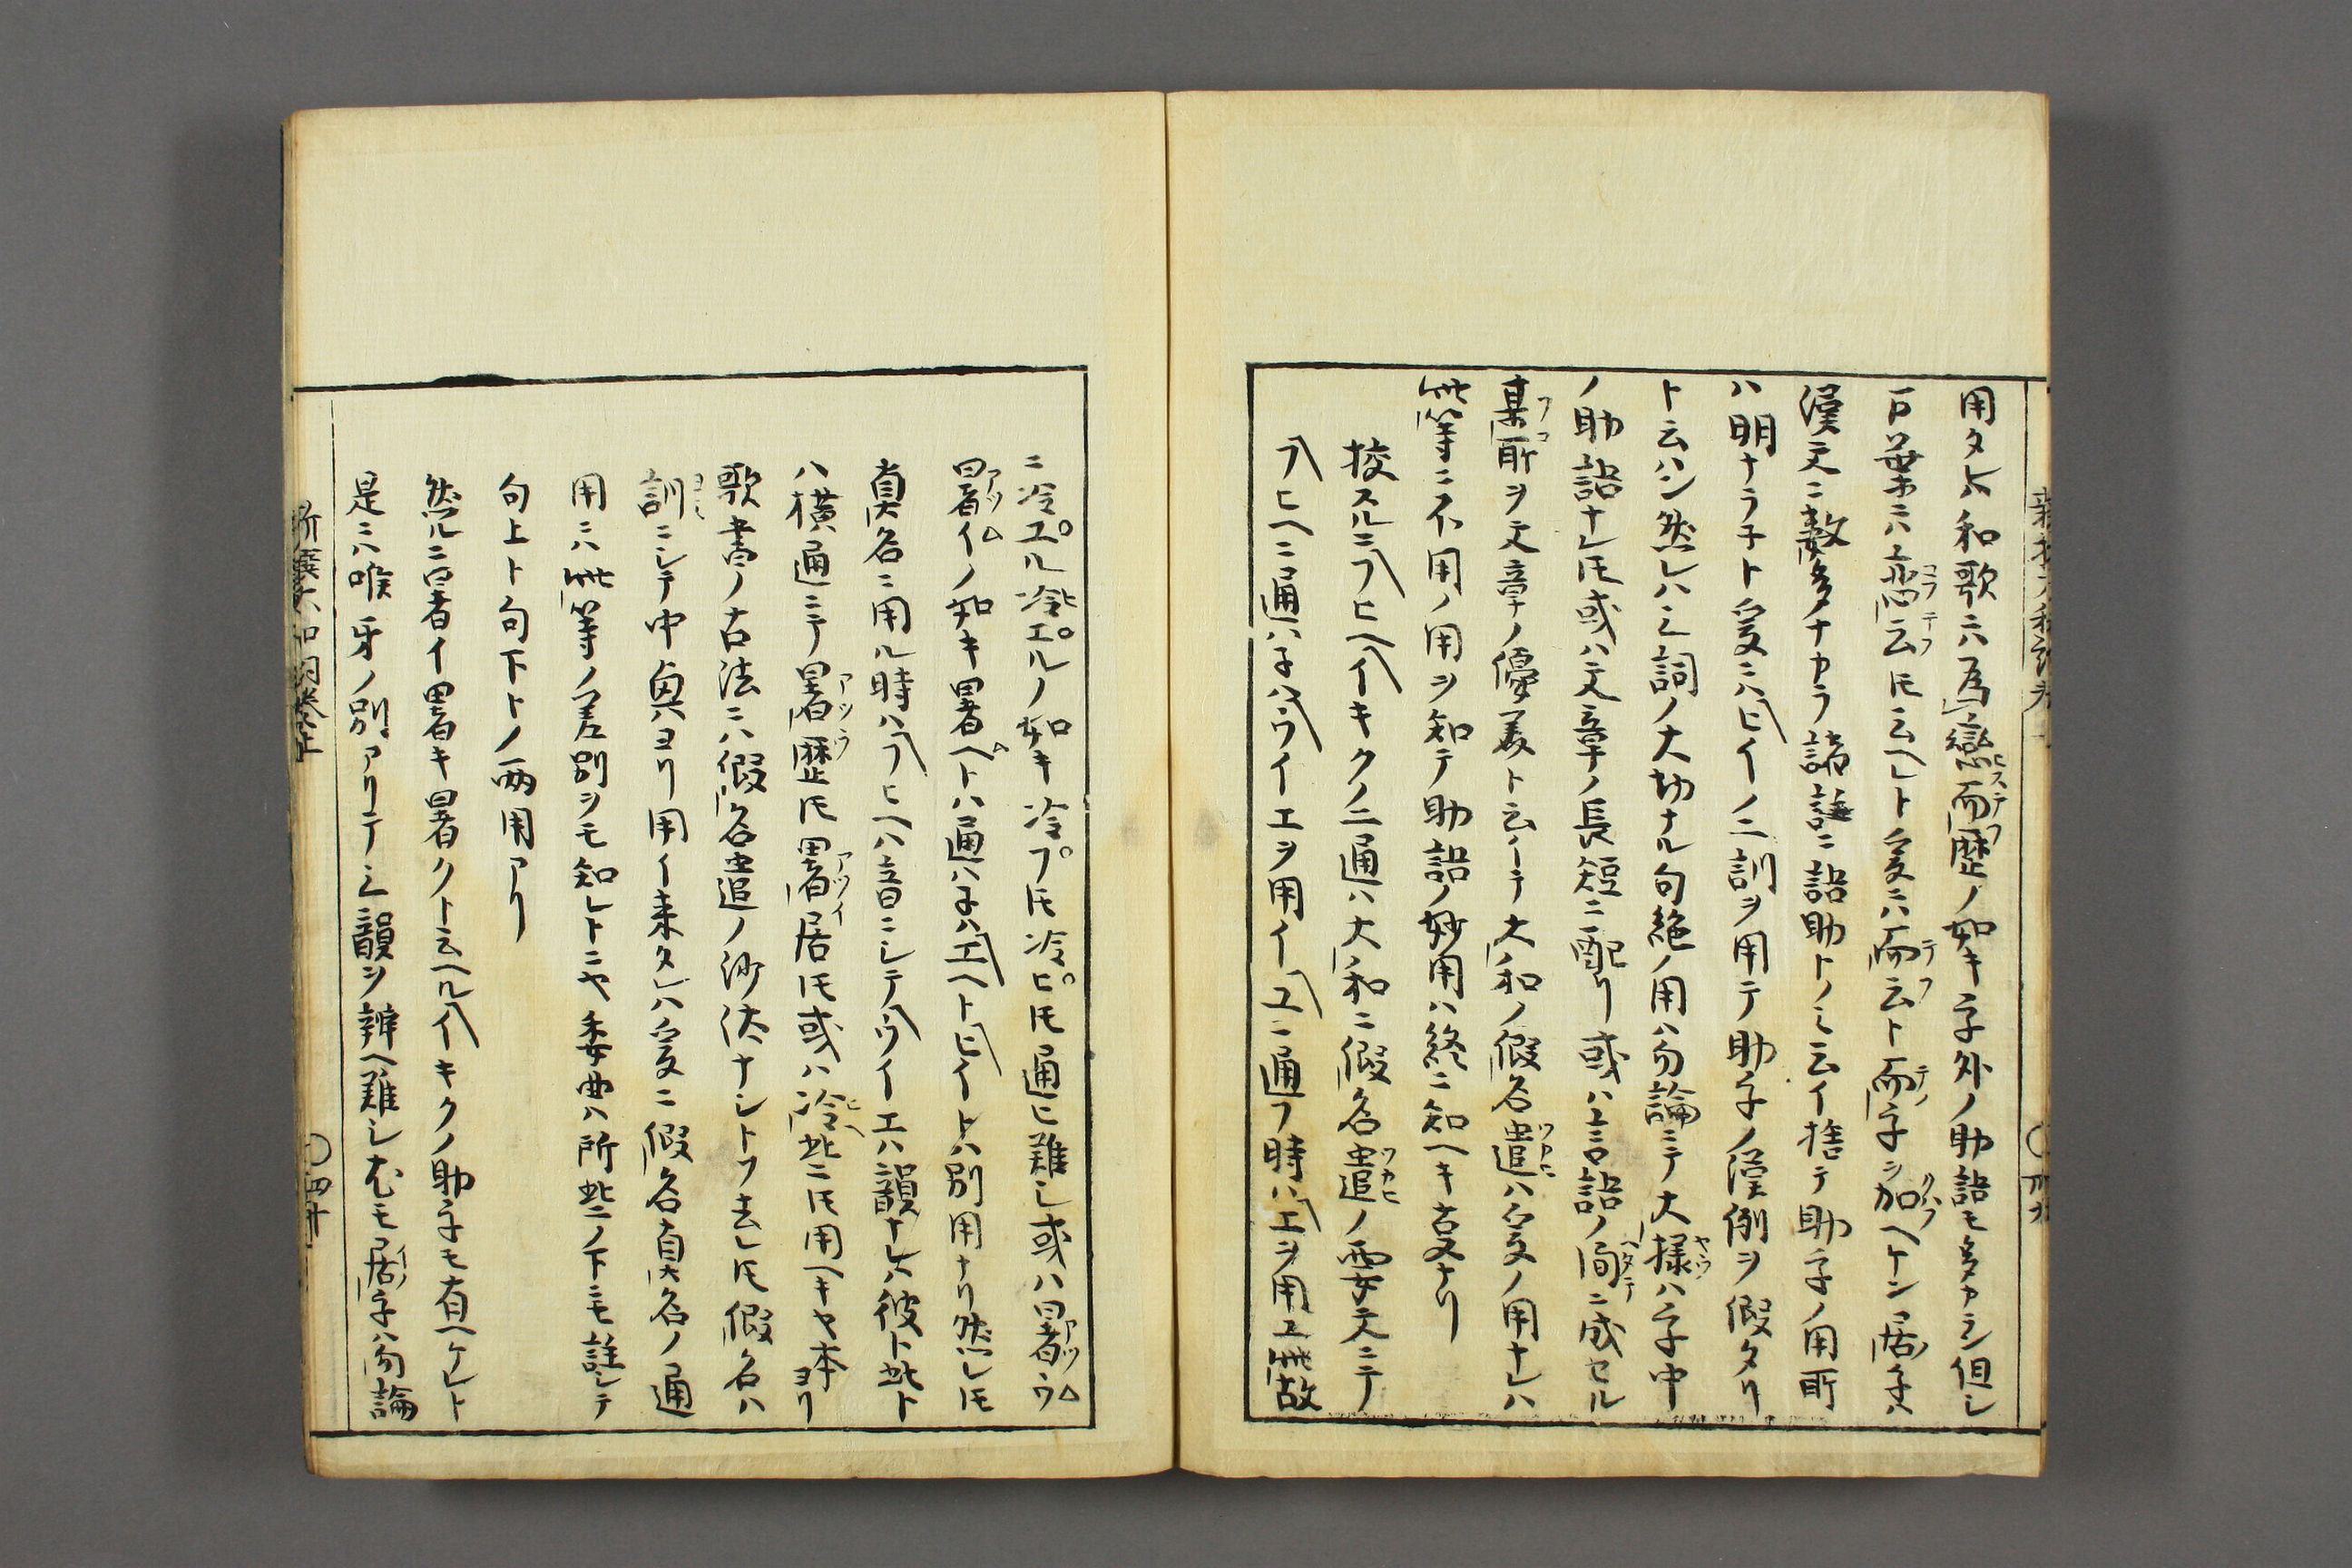 用タレハ和歌ニハ為戀而歴ノ如キ字外ノ助語モ多カラシ但シ
百葉ホニハ恋云トモ云ヘレト爰ニハ而云ト而字ヲ加ヘケン居字ハ
漢文ニ数多ナカラ諸註ニ語助トノミ云イ捨テ助字ノ用所
ハ明ナラ子ト爰ニハヒイノ二訓ヲ用テ助字ノ漢例ヲ假タリ
ト云ハン然レハ之詞ノ大切ナル句絶ノ用ハ勿論ニテ大様ハ字中
ノ助語ナレトモ或ハ文章ノ長短ニ配リ或ハ言語ノ間ニ成セル
某所ヲ文章ノ優美ト云ーテ大和ノ假名遣ハ爰ノ用ナレハ
此等ニ不用ノ用ヲ知テ助語ノ妙用ハ終ニ知ヘキ夏ナリ
挍スルニフヒヘイキクノ二通ハ大和ニ假名遣ノ要文ニテ
フヒヘニ通ハ子ハウイエヲ用イユニ通フ時ハエヲ用ユ此故
ニ冷エル冷エルノ如キ冷フトモ冷ヒトモ通ヒ難シ或ハ暑ウ
暑イノ如キ暑ヘトハ通ハ子ハエヘトヒイトハ別用ナリ然レトモ
真名ニ用ル時ハフヒヘハ音ニシテウイエハ韻ナレハ彼ト此ト
ハ横通ニテ暑歴トモ暑居トモ或ハ冷此ニトモ用ヘキヤ本ヨリ
歌書ノ古法ニハ假名遣ノ沙汰ナシトソ去レトモ假名ハ
訓ニシテ中奥ヨリ用イ来タレハ爰ニ假名真名ノ通
用ニハ此等ノ差別ヲモ知レトニヤ委曲ハ所此ノ下ニモ註シテ
句上ト句下トノ両用アリ
然ルニ暑イ暑キ暑クト云ヘルイキクノ助字モ有ヘケレト
是ニハ喉牙ノ別アリテ之韻ヲ辨ヘ難シ尤モ居字ハ勿論